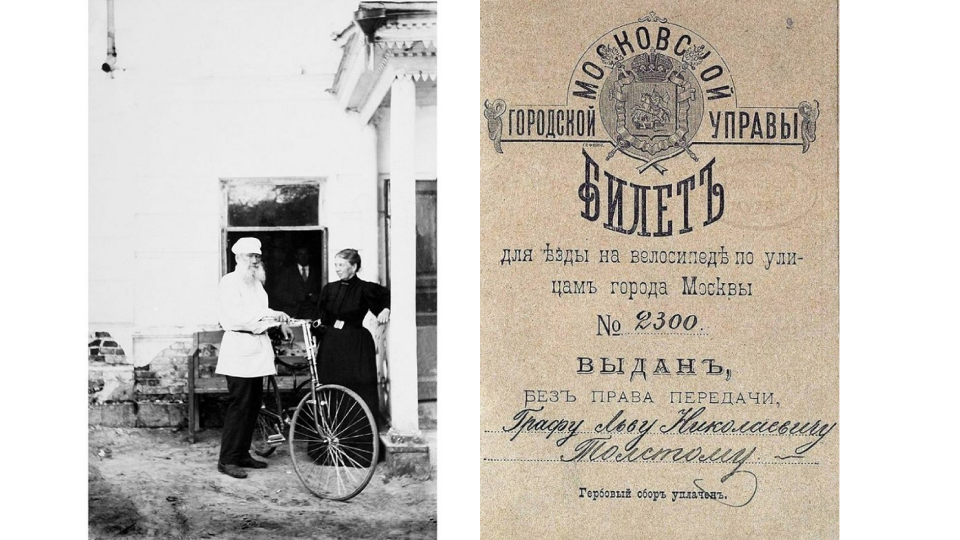 МОСКОВСКОЙ
ГОРОДСКОЙ УПРАВЫ
БИЛЕТЪ
для ѣзды на велосипедѣ по ули-
цамъ города Москвы
№ 2300.
ВЫДАНЪ,
БЕЗЪ ПРАВА ПЕРЕДАЧИ,
Графу Льву Николаевичу
Толстому.
Гербовый сборъ уплаченъ.